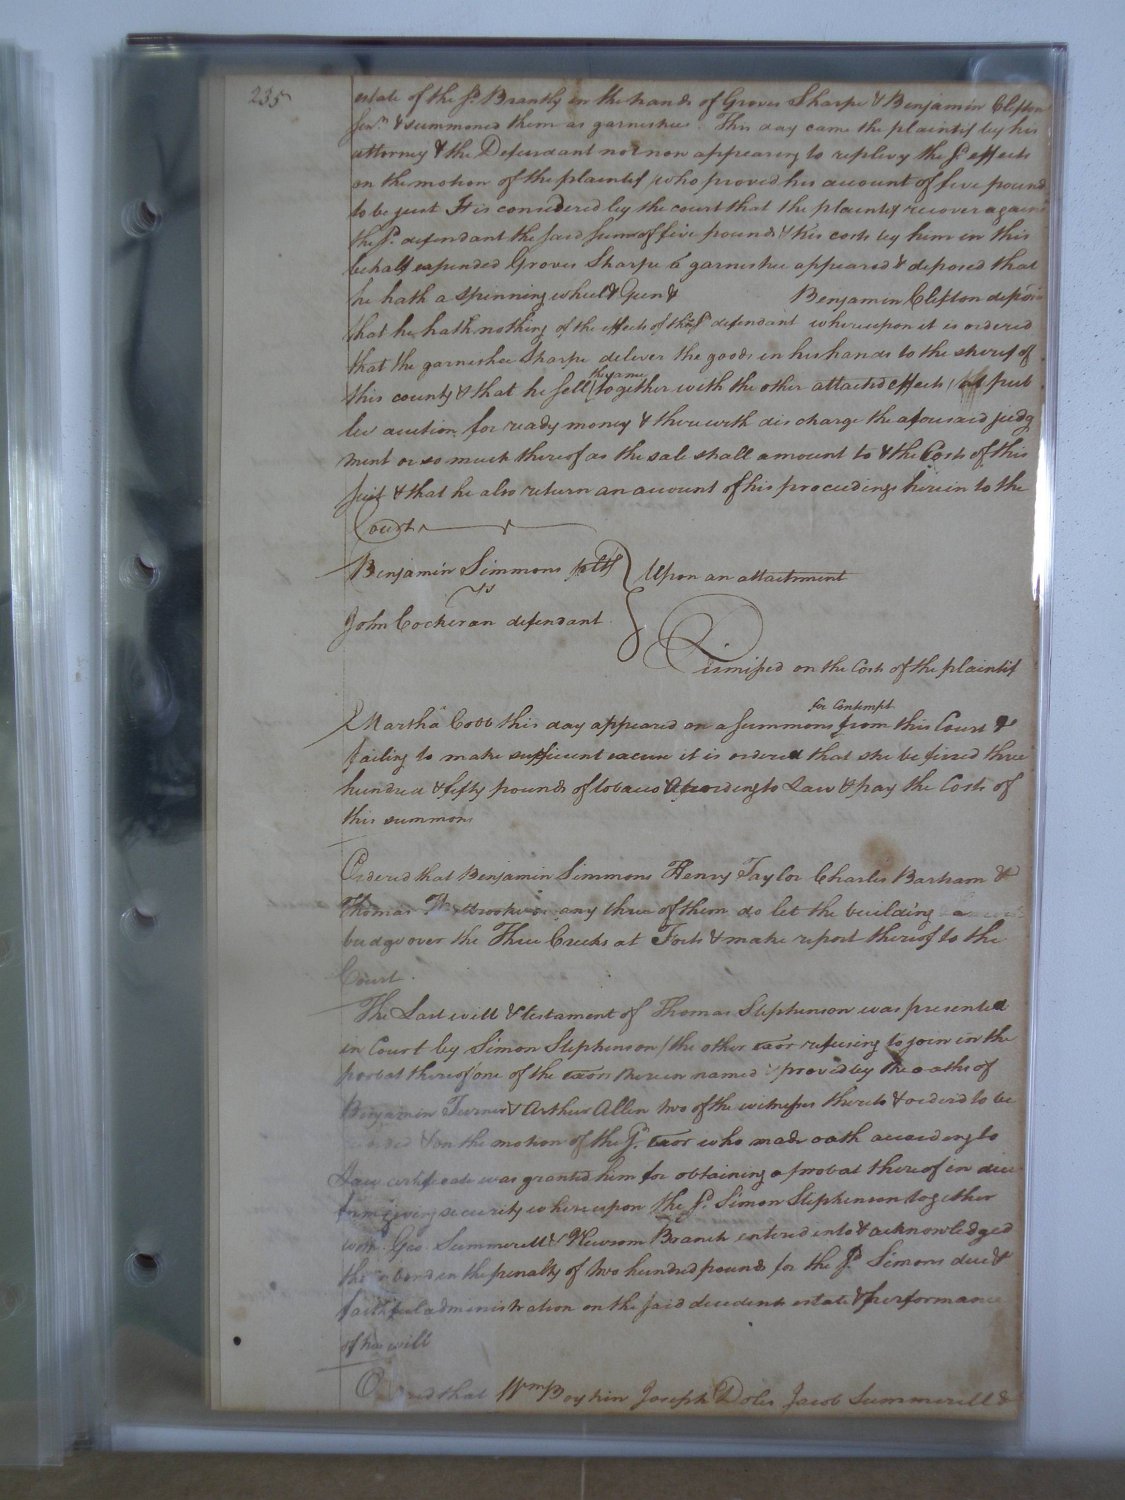 235
estate of the sd. Brantly in the hands of Groves Sharpe & Benjamin Clifton
Senr. & summoned them as garnishees. This day came the plaintif by his
attorney & the Defendant not non appearing to replevy the sd. effects
on the motion of the plaintif who proved his account of five pound
to be just It is considered by the court that the plaintif recover again
the sd. defendant the said sum of five pounds & his costs by him in this
behalf expended Groves Sharpe a garnishee appeared & deposed that
he hath a spinning wheel & Gun & Benjamin Clifton depos
that he hath nothing of the effects of the sd. defendant whereupon it is ordered
that the garnishee Sharpe deliver the goods in his hands to the sherif of
this county & that he sell the same together with the other attached effects at pub
lic auction for ready money & therewith discharge the aforesaid judg
ment or so much thereof as the sale shall amount to & the Costs of this
suit & that he also return an account of his proceedings herein to the
Court
Benjamin Simmons pltf Upon an attachment
vs
John Cockeran defendant
Dismissed on the Costs of the plaintif
for Contempt
Martha Cobb this day appeared on a summons from this Court &
failing to make sufficient excuse it is ordered that she be fined three
hundred & fifty pounds of tobacco According to Law & pay the Costs of
this summons
Ordered that Benjamin Simmons Henry Taylor Charles Barham &
Thomas any three of them do let the building a
bridge over the Three Creeks at Forts & make report thereof to the
Court
The Last will & testament of Thomas Stephenson was presented
in Court by Simon Stephenson (the other exor refusing to join in the
probat thereof one of the exors therein named & proved by the oaths of
Benjamin Turner & Arthur Allen two of the witnesses thereto & ordered to be
& on the motion of the sd. exor who made oath according to
Law certificate was granted him for obtaining a probat thereof in due
form giving security whereupon the sd. Simon Stephenson together
with Geo. Summerell & Newsom Branch entered into & acknowledged
their bond in the penalty of two hundred pounds for the sd. Simons due &
faithful administration on the said decedents estate & performance
of his will
Ordered that Wm. Boykin Joseph Doles Jacob Summerell &